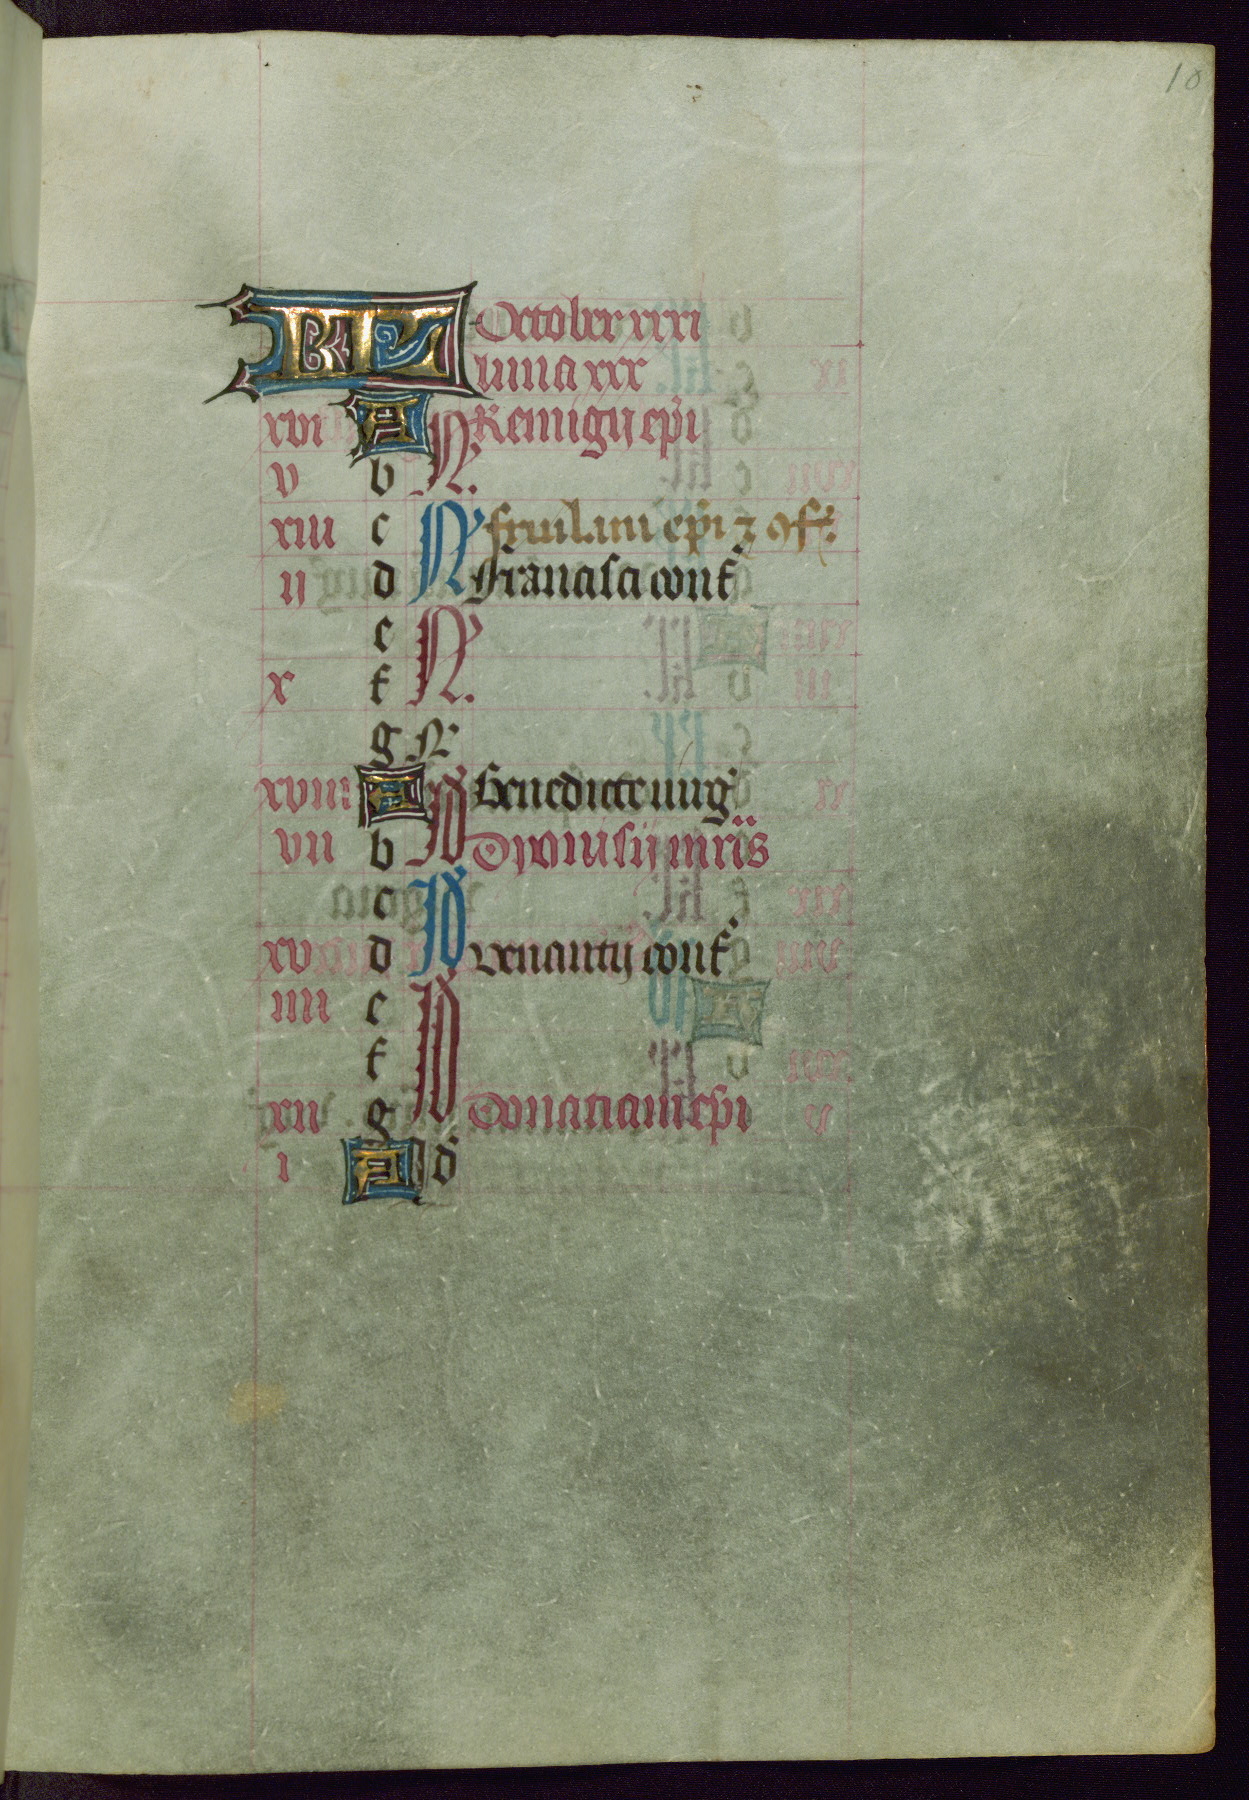 10
KL October xxxi
luna xxx
xvi A N Remigij epi
v b N.
xiii c N fruilani epi ⁊ ꝯf.
ii d N francisci conf
e N
x f N.
g N
xviii A Id Benedicte uirg
vii b Id Dyonisij mris
c Id
xv d Id Venantij conf
iiii e Id
f
xii g Id Donatiani epi
i A d